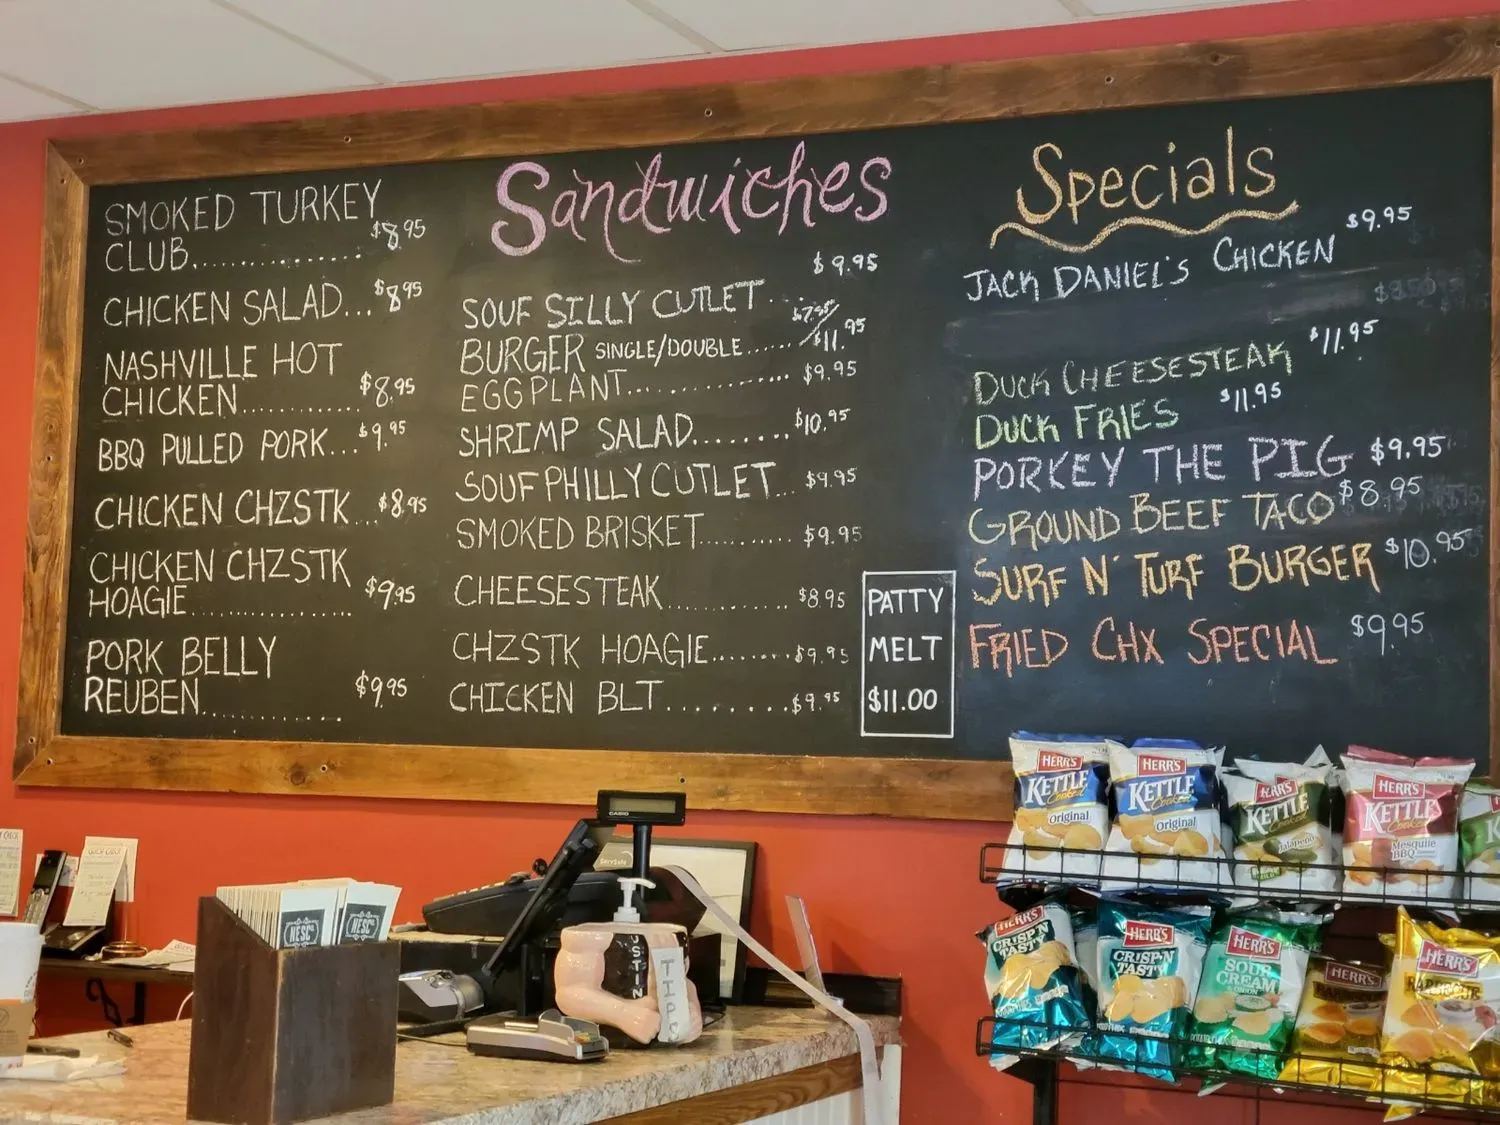 SMOKED TURKEY
CLUB.............. $8.95
CHICKEN SALAD... $8.95
NASHVILLE HOT
CHICKEN............ $8.95
BBQ PULLED PORK... $9.95
CHICKEN CHZSTK... $8.95
CHICKEN CHZSTK
HOAGIE................ $9.95
PORK BELLY
REUBEN............. $9.95
Sandwiches
SOUF SILLY CUTLET... $9.95
BURGER SINGLE/DOUBLE...... $7.95/$11.95
EGGPLANT............... $9.95
SHRIMP SALAD........ $10.95
SOUF PHILLY CUTLET... $9.95
SMOKED BRISKET.......... $9.95
CHEESESTEAK............ $8.95
CHZSTK HOAGIE........ $9.95
CHICKEN BLT......... $9.95
PATTY
MELT
$11.00
Specials
JACK DANIEL'S CHICKEN $9.95
DUCK CHEESESTEAK $11.95
DUCK FRIES $11.95
PORKEY THE PIG $9.95
GROUND BEEF TACO $8.95
SURF N' TURF BURGER $10.95
FRIED CHX SPECIAL $9.95
HERR'S
KETTLE
Cooked
Original
HERR'S
KETTLE
Cooked
Original
HERR'S
KETTLE
Cooked
Jalapeño
HERR'S
KETTLE
Cooked
Mesquite
BBQ
HERR'S
CRISP'N
TASTY
HERR'S
CRISP'N
TASTY
HERR'S
SOUR
CREAM
& ONION
HERR'S
HERR'S
BARBECUE
CASIO
ServSafe
HESC
HESC